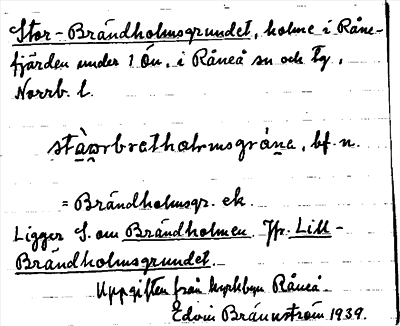 Stor-Brändholmsgrundet, holme i Råne-
fjärden under 1 Ön, i Råneå sn och tg,
Norrb. l.
bf. n.
= Brändholmsgr. ek.
Ligger S. om Brändholmen. Jfr. Lill-
Brändholmsgrundet.
Uppgiften från Kyrkbyn Råneå.
Edvin Brännström 1939.